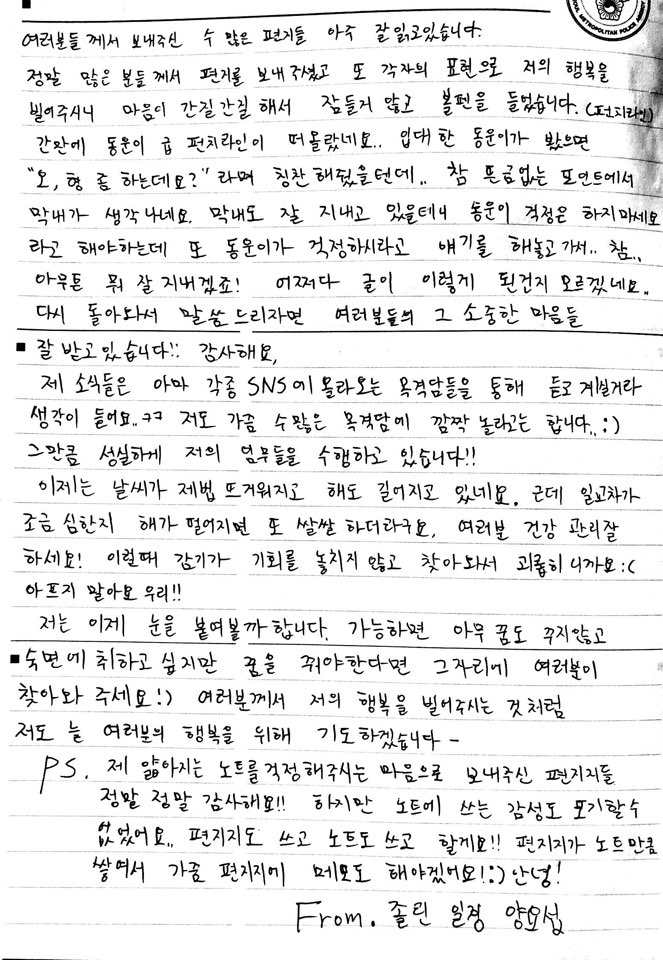 METROPOLITAN POLICE
여러분들께서 보내주신 수 많은 편지들 아주 잘 읽고있습니다.
정말 많은 분들께서 편지를 보내주셨고 또 각자의 표현으로 저의 행복을
빌어주시니 마음이 간질간질해서 잠들지 않고 볼펜을 들었습니다. (펀치라인)
간만에 동운이 급 펀치라인이 떠올랐네요.. 입대한 동운이가 봤으면
"오, 형 좀 하는데요?" 라며 칭찬해줬을텐데.. 참 뜬금없는 포인트에서
막내가 생각나네요. 막내도 잘 지내고 있을테니 동운이 걱정은 하지마세요
라고 해야하는데 또 동운이가 걱정하시라고 얘기를 해놓고가서.. 참..
아무튼 뭐 잘지내겠죠! 어쩌다 글이 이렇게 된건지 모르겠네요..
다시 돌아와서 말씀드리자면 여러분들의 그 소중한 마음들
■ 잘 받고있습니다!! 감사해요.
제 소식들은 아마 각종 SNS에 올라오는 목격담들을 통해 듣고 계실거라
생각이 들어요..ㅋㅋ 저도 가끔 수많은 목격담에 깜짝 놀라고는 합니다..:)
그만큼 성실하게 저의 업무들을 수행하고 있습니다!!
이제는 날씨가 제법 뜨거워지고 해도 길어지고 있네요. 근데 일교차가
조금 심한지 해가 떨어지면 또 쌀쌀하더라구요. 여러분 건강 관리잘
하세요! 이럴때 감기가 기회를 놓치지 않고 찾아와서 괴롭히니까요:(
아프지 말아요 우리!!
저는 이제 눈을 붙여볼까합니다. 가능하면 아무 꿈도 꾸지않고
■숙면에 취하고 싶지만 꿈을 꿔야한다면 그자리에 여러분이
찾아와 주세요!) 여러분께서 저의 행복을 빌어주시는 것처럼
저도 늘 여러분의 행복을 위해 기도하겠습니다-
PS. 제 얇아지는 노트를걱정해주시는 마음으로 보내주신 편지지들
정말 정말 감사해요!! 하지만 노트에 쓰는 감성도 포기할수
없었어요.. 편지지도 쓰고 노트도쓰고 할게요!! 편지지가 노트만큼
쌓여서 가끔 편지지에 메모도 해야겠어요!:) 안녕!
From. 졸린 일경 양요섭